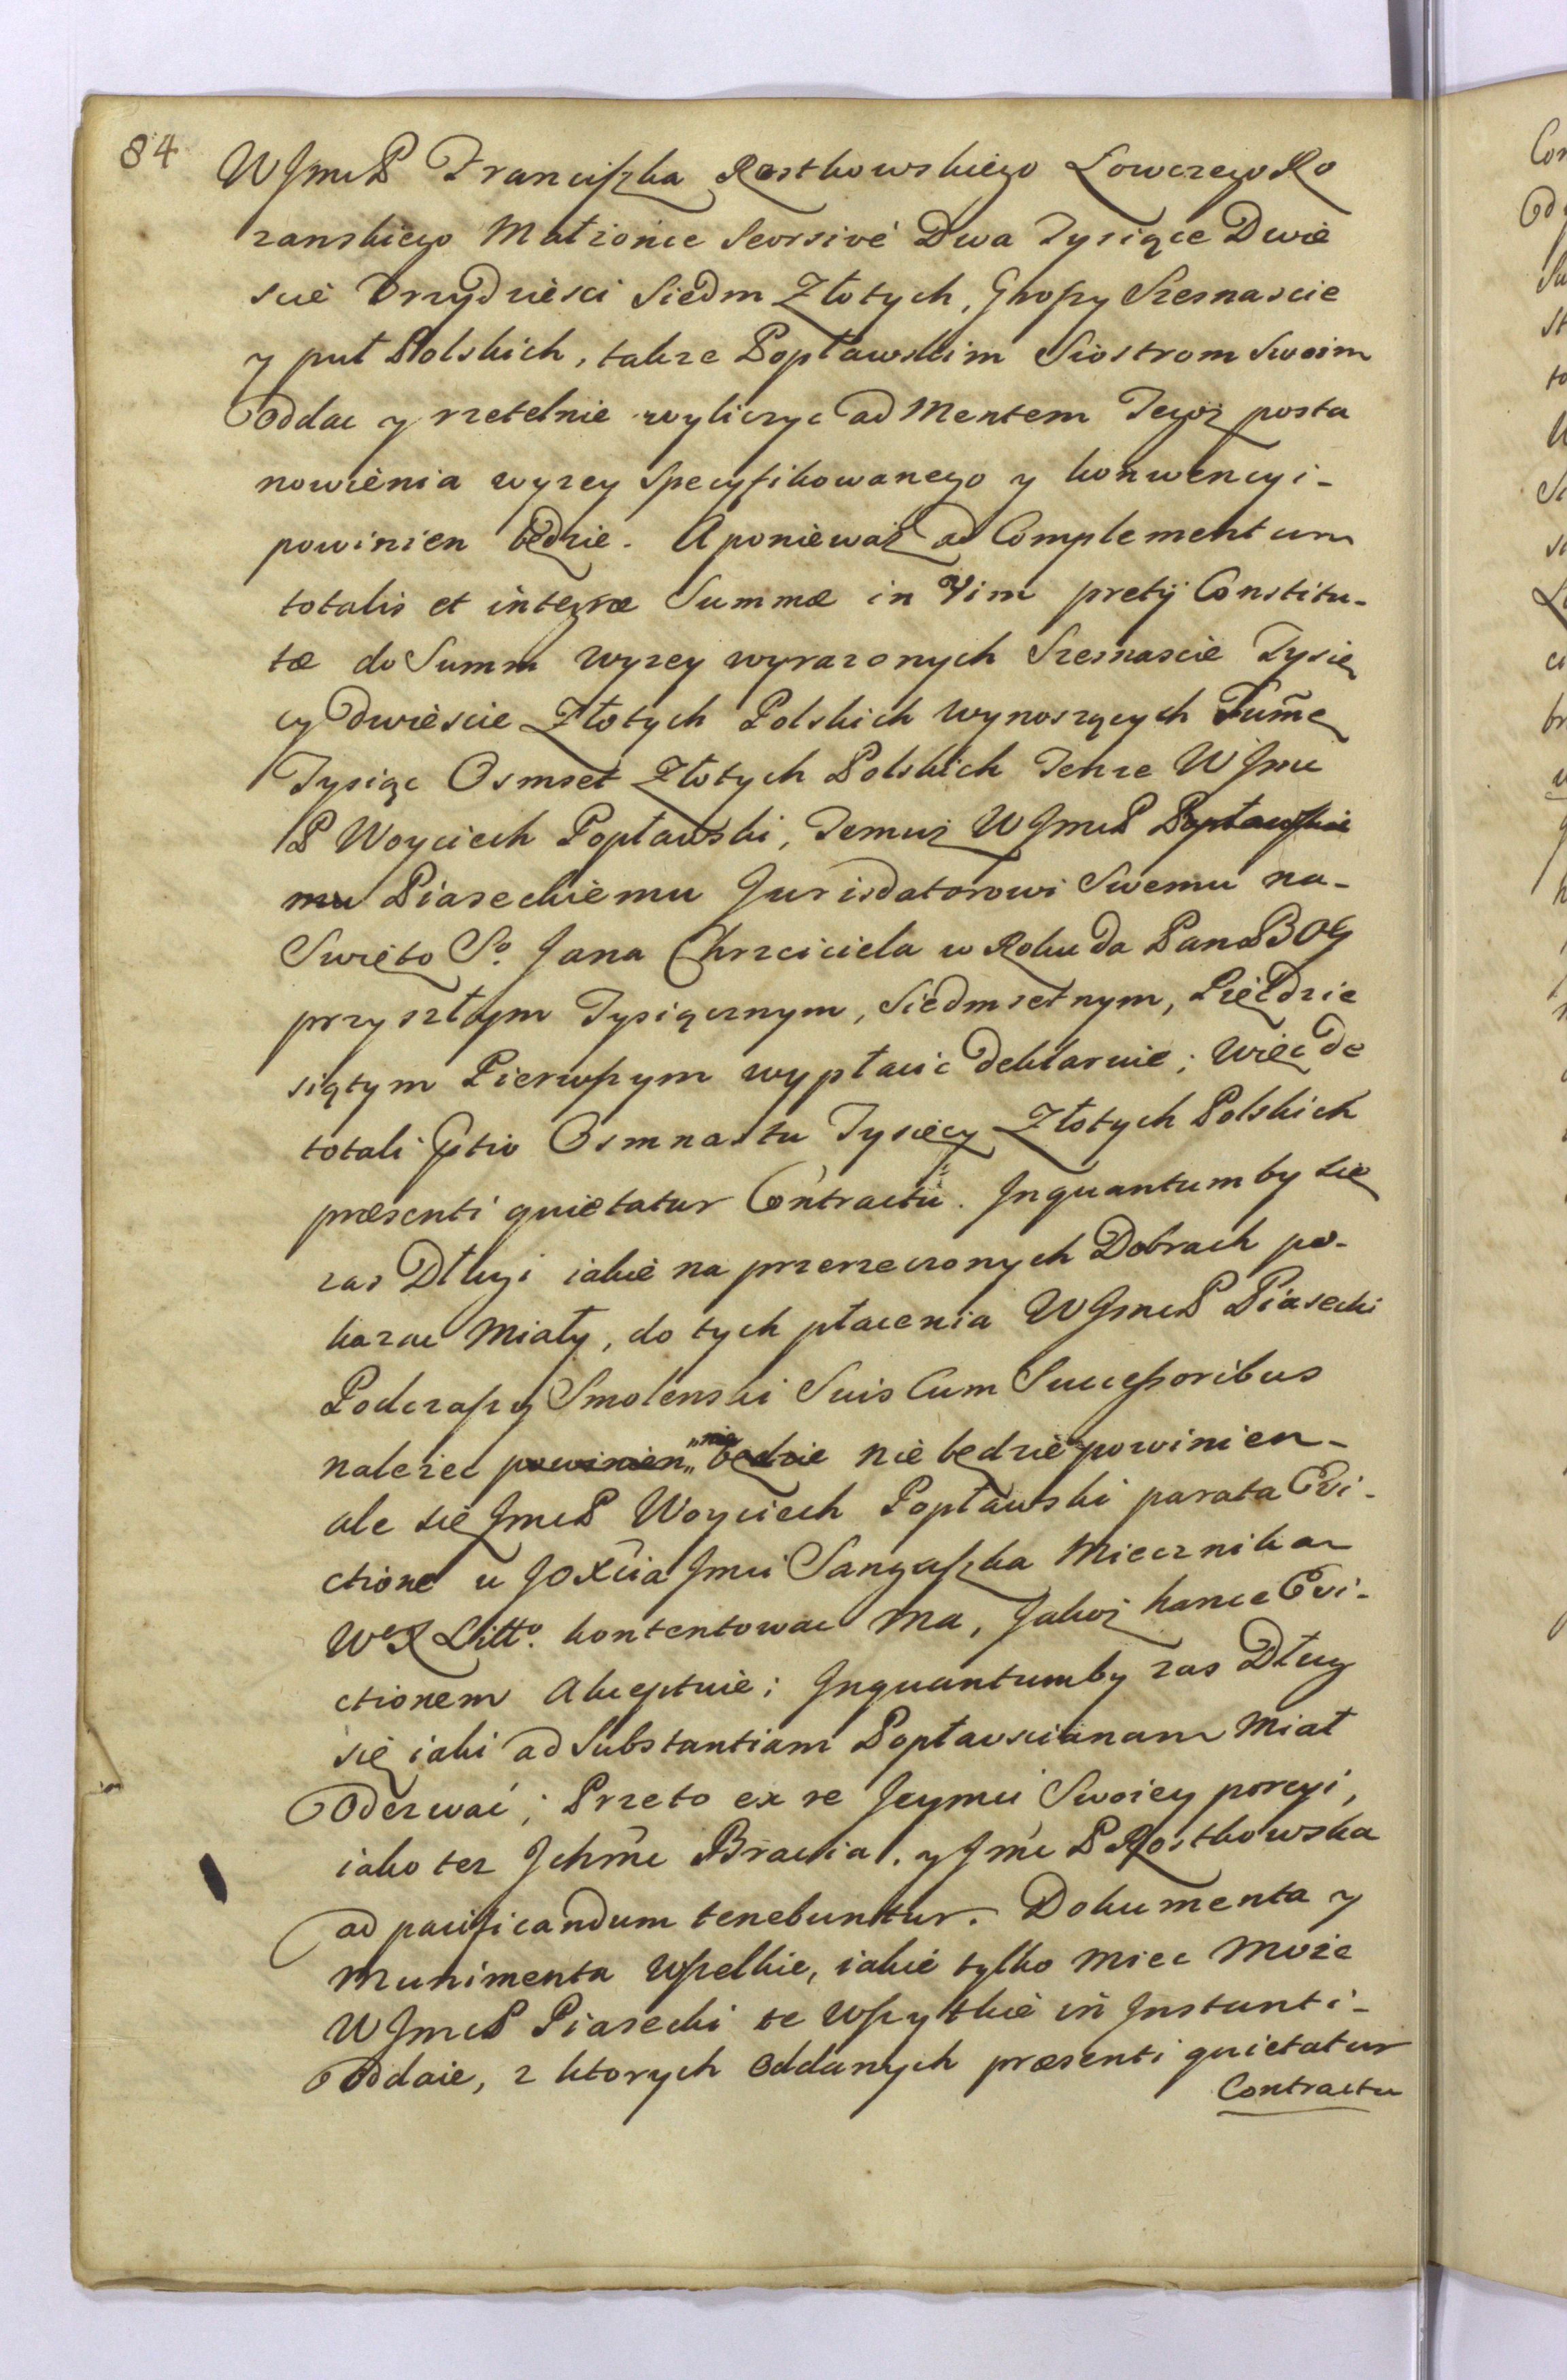 84
WJmcP Franciszka Rostkowskiego Łowczego Ro
zanskiego Małzonce Seorsive Dwa Tysiące Dwie
scie Trzydziesci Siedm Złotych, Groszy Szesnascie
y puł Polskich, takze Popławskim Siostrom Swoim
Oddac y rzetelnie wyliczyc ad Mentem Tegoż posta
nowienia wyzey specyfikowanego y konwencyi-
powinien będzie. Aponieważ ad Complementum
totalis et integræ Summæ in Vim pretij Constitu-
tæ do Summ wyzey wyrazonych Szesnascie Tysię
cy dwiescie Złotych Polskich wynoszących Sum̃ę
Tysiąc Osmset Złotych Polskich Tenze WJmc
P Woyciech Popławski, Temuż WJmcP Popławskie
mu Piaseckiemu Jurisdatorowi Swemu na-
Swięto So. Jana Chrzciciela w Roku da Pan BOG
przyszłym Tysiącznym, Siedmsetnym, Pięćdzie
siątym Pierwszym wypłacic deklaruie; Więc de
totali Pretio Osmnastu Tysięcy Złotych Polskich
præsenti quietatur Contractu. Inquantum by się
zas Długi iakie na przerzeczonych Dobrach po-
kazac miały, do tych płacenia WJmcP Piasecki
Podczaszy Smolenski Suis Cum Successoribus
nalezec powinien,, nie będzie nie będzie powinien-
ale się JmcP Woyciech Popławski parata Evi-
ctione u JOXcia Jmci Sanguszka Miecznika
WeX Litto. kontentowac ma, Jakoż hance Evi-
ctionem akceptuie; Inquantumby zas Dług
się iaki ad Substantiam Popłavscianam miał
Oderwać; Przeto ex re Jeymci Swoiey porcyi,
iako tez Ichmc Bracia, y Jmc P Rostkowska
ad pacificandum tenebuntur. Dokumenta y
Munimenta wszelkie, iakie tylko miec może
WJmcP Piasecki te wszytkie in Instanti-
Oddaie, z ktorych oddanych præsenti quietatur
Contractu